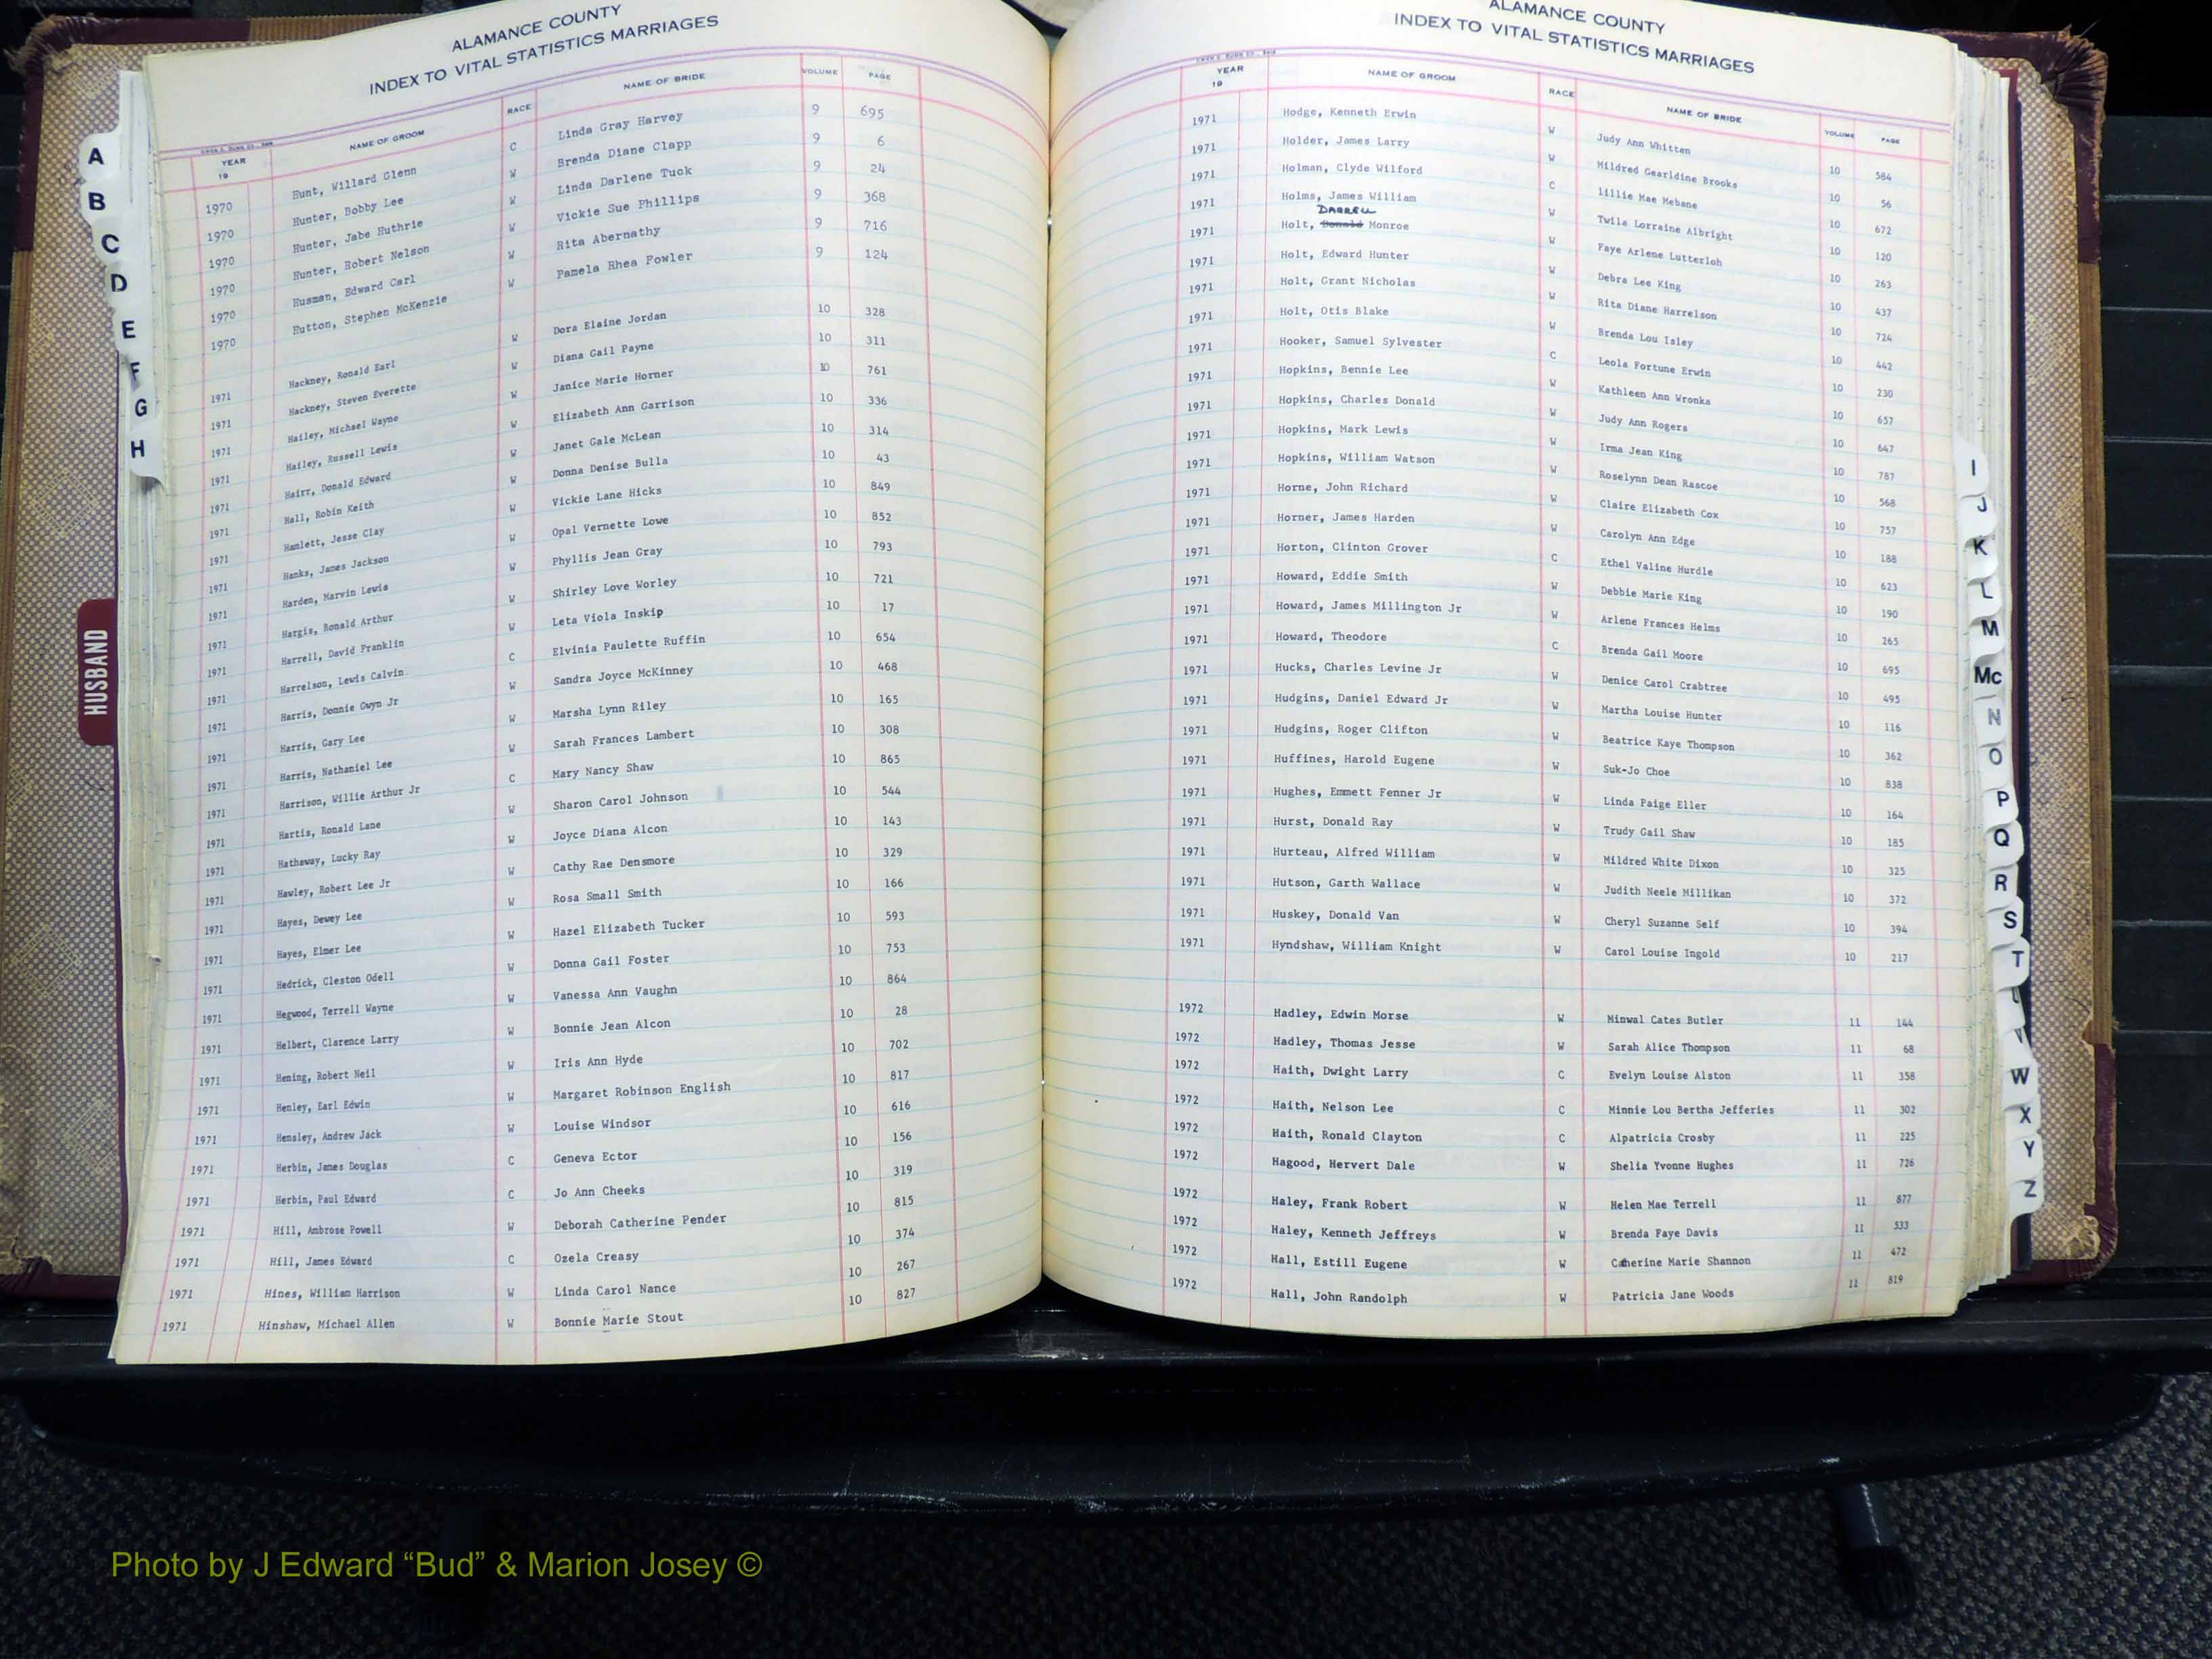 ALAMANCE COUNTY
INDEX TO VITAL STATISTICS MARRIAGES
YEAR 19 NAME OF GROOM RACE NAME OF BRIDE VOLUME PAGE
1970 Hunt, Willard Glenn C Linda Gray Harvey 9 695
1970 Hunter, Bobby Lee W Brenda Diane Clapp 9 6
1970 Hunter, Jabe Huthrie W Linda Darlene Tuck 9 24
1970 Hunter, Robert Nelson W Vickie Sue Phillips 9 368
1970 Husman, Edward Carl W Rita Abernathy 9 716
1970 Hutton, Stephen McKenzie W Pamela Rhea Fowler 9 124
1971 Hackney, Ronald Earl W Dora Elaine Jordan 10 328
1971 Hackney, Steven Everette W Diana Gail Payne 10 311
1971 Hailey, Michael Wayne W Janice Marie Horner 10 761
1971 Hailey, Russell Lewis W Elizabeth Ann Garrison 10 336
1971 Hairr, Donald Edward W Janet Gale McLean 10 314
1971 Hall, Robin Keith W Donna Denise Bulla 10 43
1971 Hamlett, Jesse Clay W Vickie Lane Hicks 10 849
1971 Hanks, James Jackson W Opal Vernette Lowe 10 852
1971 Harden, Marvin Lewis W Phyllis Jean Gray 10 793
1971 Hargis, Ronald Arthur W Shirley Love Worley 10 721
1971 Harrell, David Franklin W Leta Viola Inskip 10 17
1971 Harrelson, Lewis Calvin C Elvinia Paulette Ruffin 10 654
1971 Harris, Donnie Gwyn Jr W Sandra Joyce McKinney 10 468
1971 Harris, Gary Lee W Marsha Lynn Riley 10 165
1971 Harris, Nathaniel Lee W Sarah Frances Lambert 10 308
1971 Harrison, Willie Arthur Jr C Mary Nancy Shaw 10 865
1971 Hartis, Ronald Lane W Sharon Carol Johnson 10 544
1971 Hathaway, Lucky Ray W Joyce Diana Alcon 10 143
1971 Hawley, Robert Lee Jr W Cathy Rae Densmore 10 329
1971 Hayes, Dewey Lee W Rosa Small Smith 10 166
1971 Hayes, Elmer Lee W Hazel Elizabeth Tucker 10 593
1971 Hedrick, Cleston Odell W Donna Gail Foster 10 753
1971 Hegwood, Terrell Wayne W Vanessa Ann Vaughn 10 864
1971 Helbert, Clarence Larry W Bonnie Jean Alcon 10 28
1971 Hening, Robert Neil W Iris Ann Hyde 10 702
1971 Henley, Earl Edwin W Margaret Robinson English 10 817
1971 Hensley, Andrew Jack W Louise Windsor 10 616
1971 Herbin, James Douglas C Geneva Ector 10 156
1971 Herbin, Paul Edward C Jo Ann Cheeks 10 319
1971 Hill, Ambrose Powell W Deborah Catherine Pender 10 815
1971 Hill, James Edward C Ozela Creasy 10 374
1971 Hines, William Harrison W Linda Carol Nance 10 267
1971 Hinshaw, Michael Allen W Bonnie Marie Stout 10 827
A
B
C
D
E
F
G
H
HUSBAND
ALAMANCE COUNTY
INDEX TO VITAL STATISTICS MARRIAGES
YEAR 19 NAME OF GROOM RACE NAME OF BRIDE VOLUME PAGE
1971 Hodge, Kenneth Erwin W Judy Ann Whitten 10 584
1971 Holder, James Larry W Mildred Gearldine Brooks 10 56
1971 Holman, Clyde Wilford C lillie Mae Mebane 10 672
1971 Holms, James William W Twila Lorraine Albright 10 120
DARRELL
1971 Holt, Donald Monroe W Faye Arlene Lutterloh 10 263
1971 Holt, Edward Hunter W Debra Lee King 10 437
1971 Holt, Grant Nicholas W Rita Diane Harrelson 10 724
1971 Holt, Otis Blake W Brenda Lou Isley 10 442
1971 Hooker, Samuel Sylvester C Leola Fortune Erwin 10 230
1971 Hopkins, Bennie Lee W Kathleen Ann Wronka 10 657
1971 Hopkins, Charles Donald W Judy Ann Rogers 10 647
1971 Hopkins, Mark Lewis W Irma Jean King 10 787
1971 Hopkins, William Watson W Roselynn Dean Rascoe 10 568
1971 Horne, John Richard W Claire Elizabeth Cox 10 757
1971 Horner, James Harden W Carolyn Ann Edge 10 188
1971 Horton, Clinton Grover C Ethel Valine Hurdle 10 623
1971 Howard, Eddie Smith W Debbie Marie King 10 190
1971 Howard, James Millington Jr W Arlene Frances Helms 10 265
1971 Howard, Theodore C Brenda Gail Moore 10 695
1971 Hucks, Charles Levine Jr W Denice Carol Crabtree 10 495
1971 Hudgins, Daniel Edward Jr W Martha Louise Hunter 10 116
1971 Hudgins, Roger Clifton W Beatrice Kaye Thompson 10 362
1971 Huffines, Harold Eugene W Suk-Jo Choe 10 838
1971 Hughes, Emmett Fenner Jr W Linda Paige Eller 10 164
1971 Hurst, Donald Ray W Trudy Gail Shaw 10 185
1971 Hurteau, Alfred William W Mildred White Dixon 10 325
1971 Hutson, Garth Wallace W Judith Neele Millikan 10 372
1971 Huskey, Donald Van W Cheryl Suzanne Self 10 394
1971 Hyndshaw, William Knight W Carol Louise Ingold 10 217
1972 Hadley, Edwin Morse W Minwal Cates Butler 11 144
1972 Hadley, Thomas Jesse W Sarah Alice Thompson 11 68
1972 Haith, Dwight Larry C Evelyn Louise Alston 11 358
1972 Haith, Nelson Lee C Minnie Lou Bertha Jefferies 11 302
1972 Haith, Ronald Clayton C Alpatricia Crosby 11 225
1972 Hagood, Hervert Dale W Shelia Yvonne Hughes 11 726
1972 Haley, Frank Robert W Helen Mae Terrell 11 877
1972 Haley, Kenneth Jeffreys W Brenda Faye Davis 11 533
1972 Hall, Estill Eugene W Catherine Marie Shannon 11 472
1972 Hall, John Randolph W Patricia Jane Woods 11 819
I
J
K
L
M
Mc
N
O
P
Q
R
S
T
W
X
Y
Z
Photo by J Edward “Bud” & Marion Josey ©